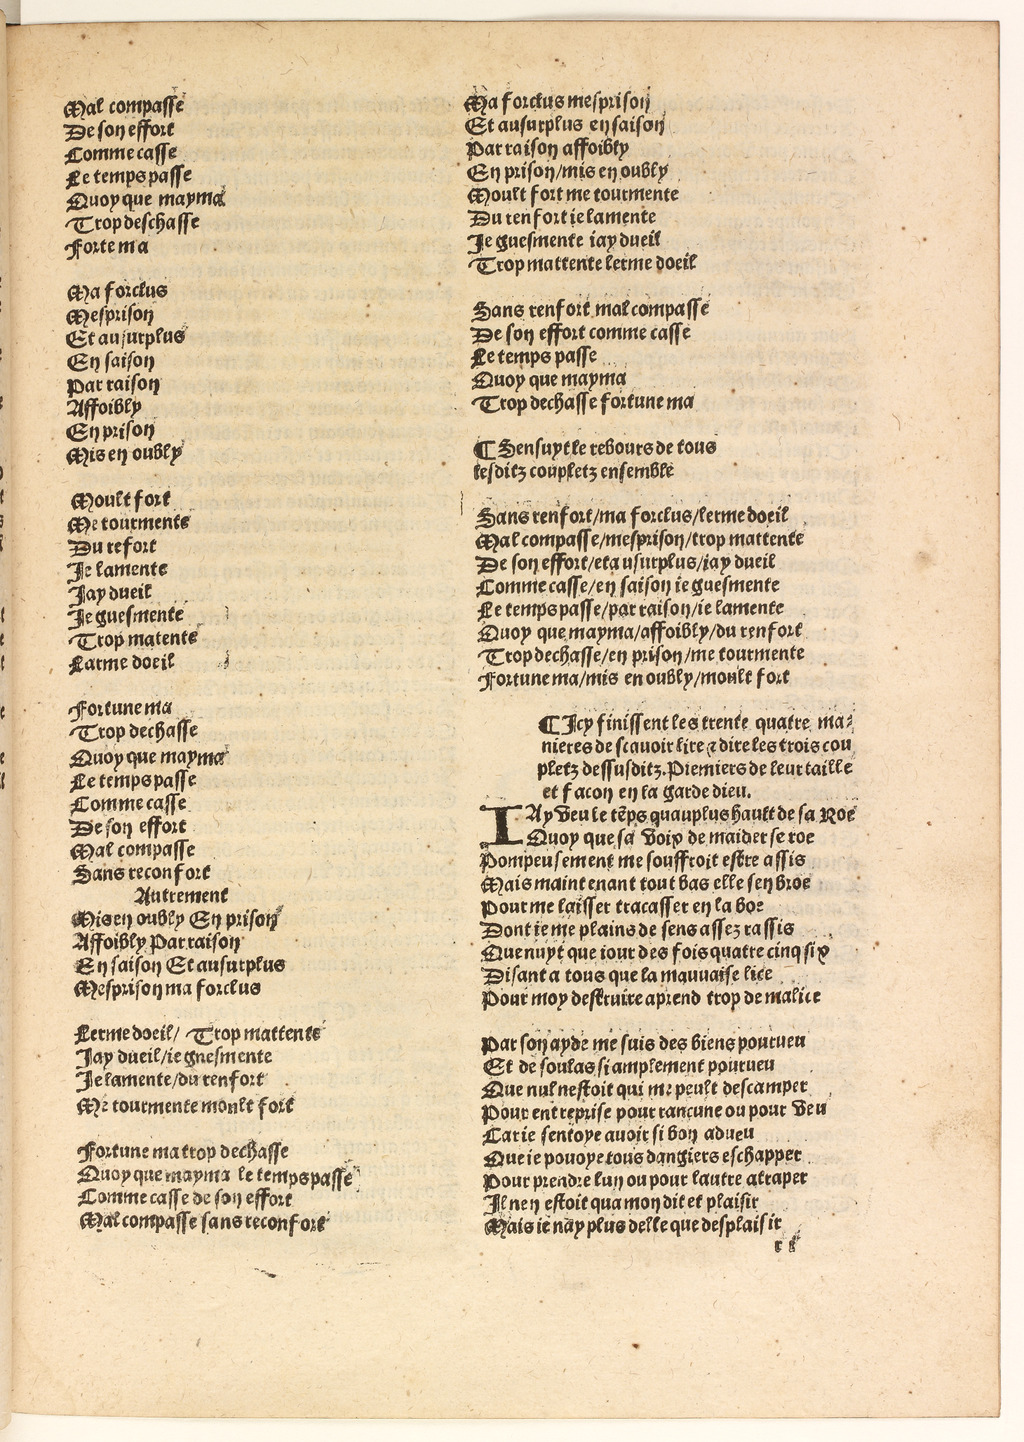 Mal compasse
De son effort
Comme casse
Le temps passe
Quoy que mayma
Trop deschasse
Forte ma
Ma forclus
Mesprison
Et au surplus
En saison
Par raison
Affoibly
En prison
Mis en oubly
Moult fort
Me tourmente
Du refort
Je lamente
Jay dueil
Je guesmente
Trop matente
Larme doeil
Fortune ma
Trop dechasse
Quoy que mayma
Le temps passe
Comme casse
De son effort
Mal compasse
Sans reconfort
Autrement
Mis en oubly En prison
Affoibly Par raison
En saison Et au surplus
Mesprison ma forclus
Lerme doeil/ Trop mattente
Jay dueil/ie gnesmente
Je lamente/du renfort
Me tourmente moult fort
Fortune ma trop dechasse
Quoy que mayma le temps passe
Comme casse de son effort
Mal compasse sans reconfort
Ma forclus mesprison
Et au surplus en saison
Par raison affoibly
En prison/mis en oubly
Moult fort me tourmente
Du renfort ie lamente
Je guesmente iay dueil
Trop mattente lerme doeil
Sans renfort mal compasse
De son effort comme casse
Le temps passe
Quoy que mayma
Trop dechasse fortune ma
¶ Sensuyt le rebours de tous
lesditz coupletz ensemble
Sans renfort/ma forclus/lerme doeil
Mal compasse/mesprison/trop mattente
De son effort/et au surplus/iay dueil
Comme casse/en saison ie guesmente
Le temps passe/par raison/ie lamente
Quoy que mayma/affoibly/du renfort
Trop dechasse/en prison/me tourmente
Fortune ma/mis en oubly/moult fort
¶ Icy finissent les trente quatre ma⸗
nieres de scauoir lire ⁊ dire les trois cou
pletz dessusditz. Premiers de leur taille
et facon en la garde dieu.
IAy veu le tẽps quau plus hault de sa Roe
Quoy que sa voix de maider se roe
Pompeusement me souffroit estre assis
Mais maintenant tout bas elle sen broe
Pour me laisser tracasser en la boe
Dont ie me plains de sens assez rassis
Que nuyt que iour des fois quatre cinq six
Disant a tous que la mauuaise lice
Pour moy destruire aprend trop de malice
Par son ayde me suis des biens pourueu
Et de soulas si amplement pourueu
Que nul nestoit qui me peult descamper
Pour entreprise pour rancune ou pour veu
Car ie sentoye auoir si bon adueu
Que ie pouoye tous dangiers eschapper
Pour prendre lun ou pour lautre atraper
Il nen estoit qua mon dit et plaisir
Mais ie nay plus delle que desplaisir